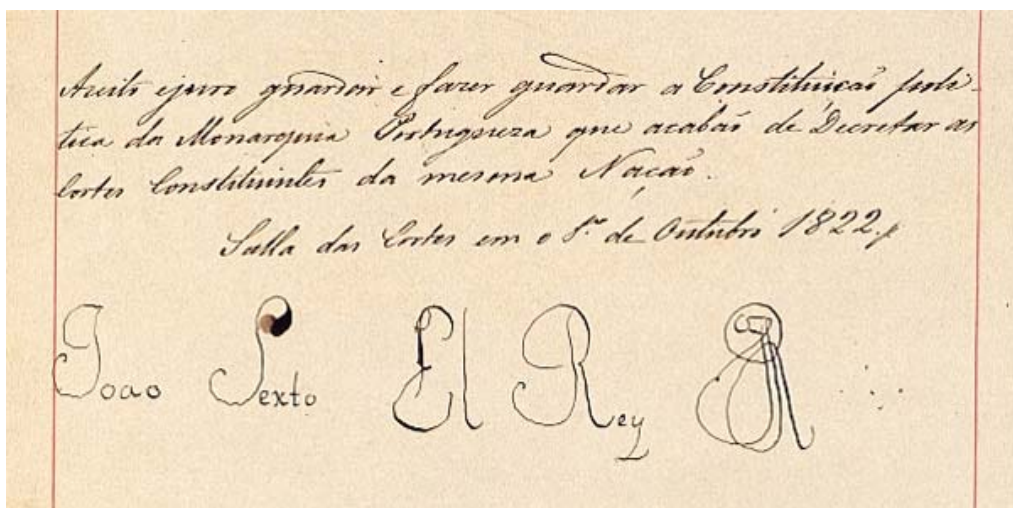 Aceito e juro guardar e fazer guardar a Constituição poli-
tica da Monarquia Portugueza que acabaõ de Decretar as
Cortes Constituintes da mesma Naçaõ.
Salla das Cortes em o 1.º de Outubro 1822.
Joao Sexto El Rey